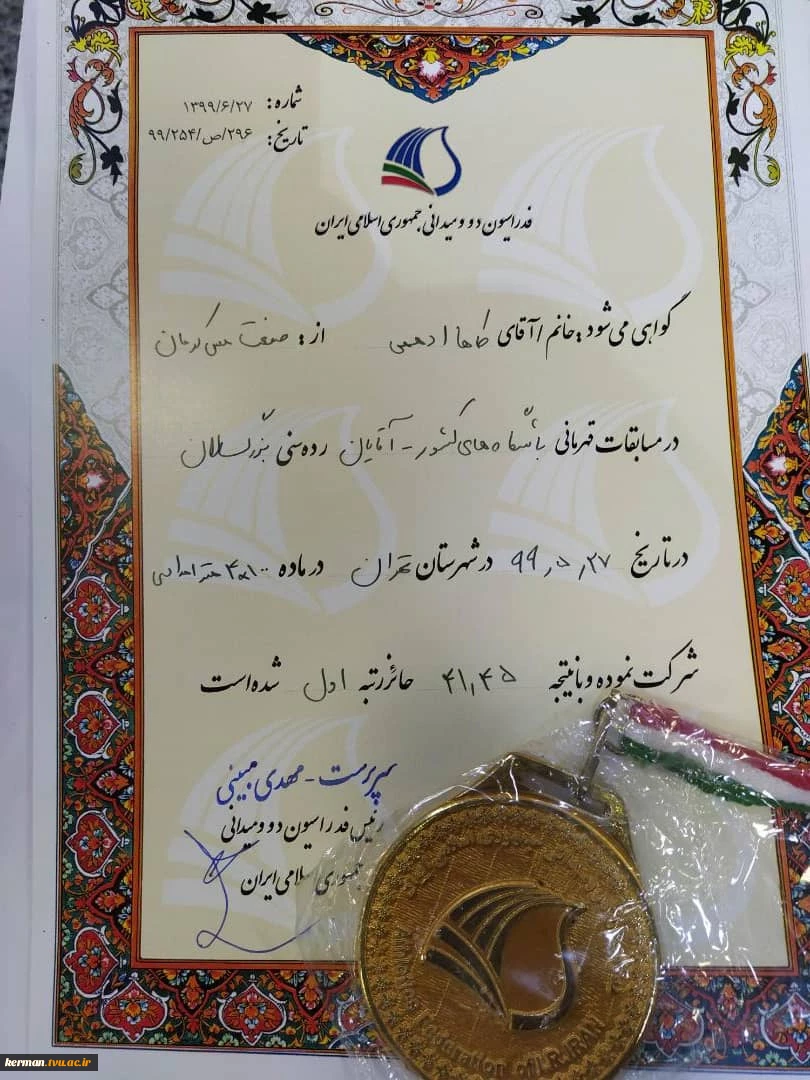 شماره: ۱۳۹۹/۶/۲۷
تاریخ: ۲۹۶/ص/۹۹/۲۵۴
فدراسیون دو و میدانی جمهوری اسلامی ایران
گواهی می‌شود: خانم / آقای طاها ادهمی از: صنعت مس کرمان
در مسابقات قهرمانی باشگاه‌های کشور - آقایان رده سنی بزرگسالان
در تاریخ ۹۹،۵،۲۷ در شهرستان تهران در ماده ۴×۱۰۰ متر امدادی
شرکت نموده و با نتیجه ۴۱,۴۵ حائز رتبه اول شده است
سرپرست - مهدی مبینی
رئیس فدراسیون دو و میدانی
جمهوری اسلامی ایران
Federation of I.R.IRAN
kerman.tvu.ac.ir